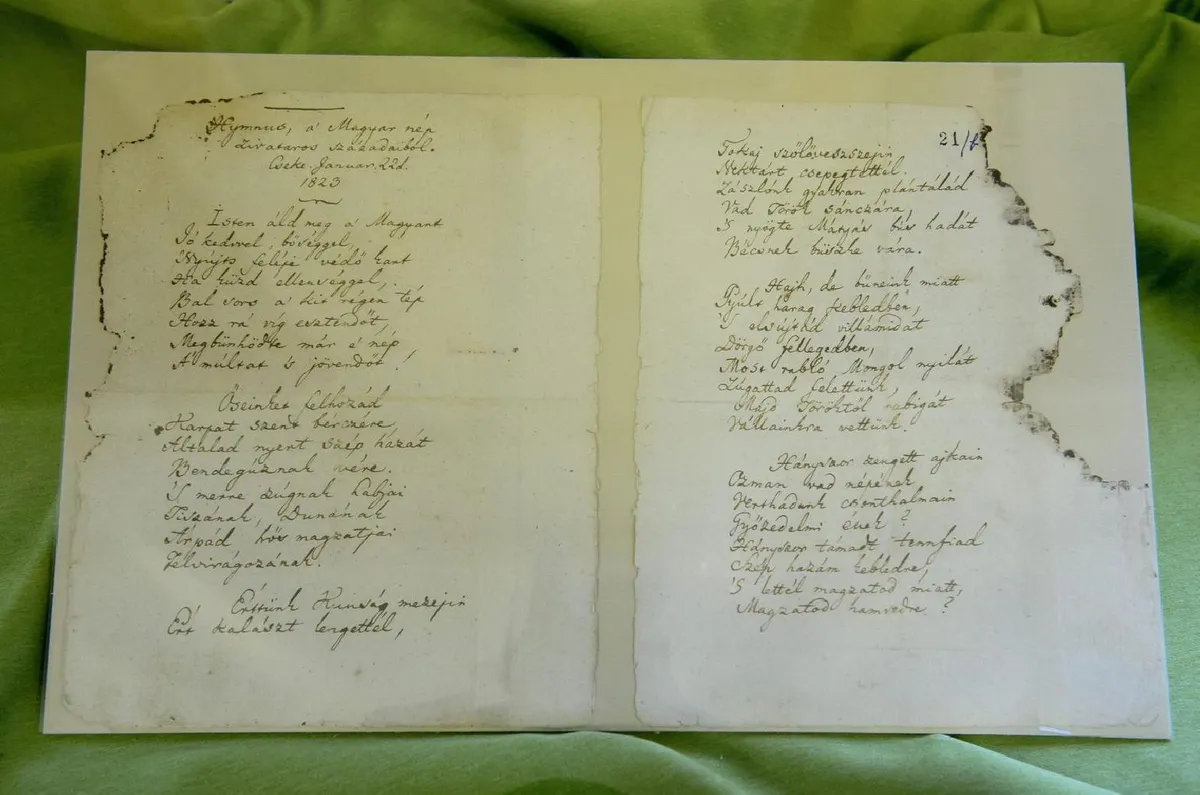 Hymnus, a' Magyar nép
Zivataros századaiból.
Cseke. Januar. 22d.
1823
Isten áld meg a' Magyart
Jó kedvvel, bőséggel,
Nyújts feléje védő kart
Ha küzd ellenséggel,
Bal sors a' kit régen tép
Hozz rá víg esztendőt,
Megbűnhődte már e' nép
A' múltat 's jövendőt!
Őseinket felhozád
Kárpát szent bérczére,
Általad nyert szép hazát
Bendegúznak vére.
'S merre zúgnak habjai
Tiszának, Dunának
Árpád hős magzatjai
Felvirágozának.
Értünk Kunság mezején
Ért kalászt lengettél,
21/1
Tokaj szőlővesszején
Nektárt csepegtettél.
Zászlónk gyakran plántálád
Vad Török sánczára,
'S nyögte Mátyás bús hadát
Bécsnek büszke vára.
Hajh, de bűneink miatt
Gyúlt harag kebledben,
'S elsújtád villámidat
Dörgő fellegedben,
Most rabló Mongol nyilát
Zúgattad felettünk,
Majd Töröktől rabigát
Vállainkra vettünk.
Hányszor zengett ajkain
Ozman vad népének
Vert hadunk csonthalmain
Győzedelmi ének?
Hányszor támadt tennfiad
Szép hazám kebledre,
'S lettél magzatod miatt,
Magzatod hamvedre?